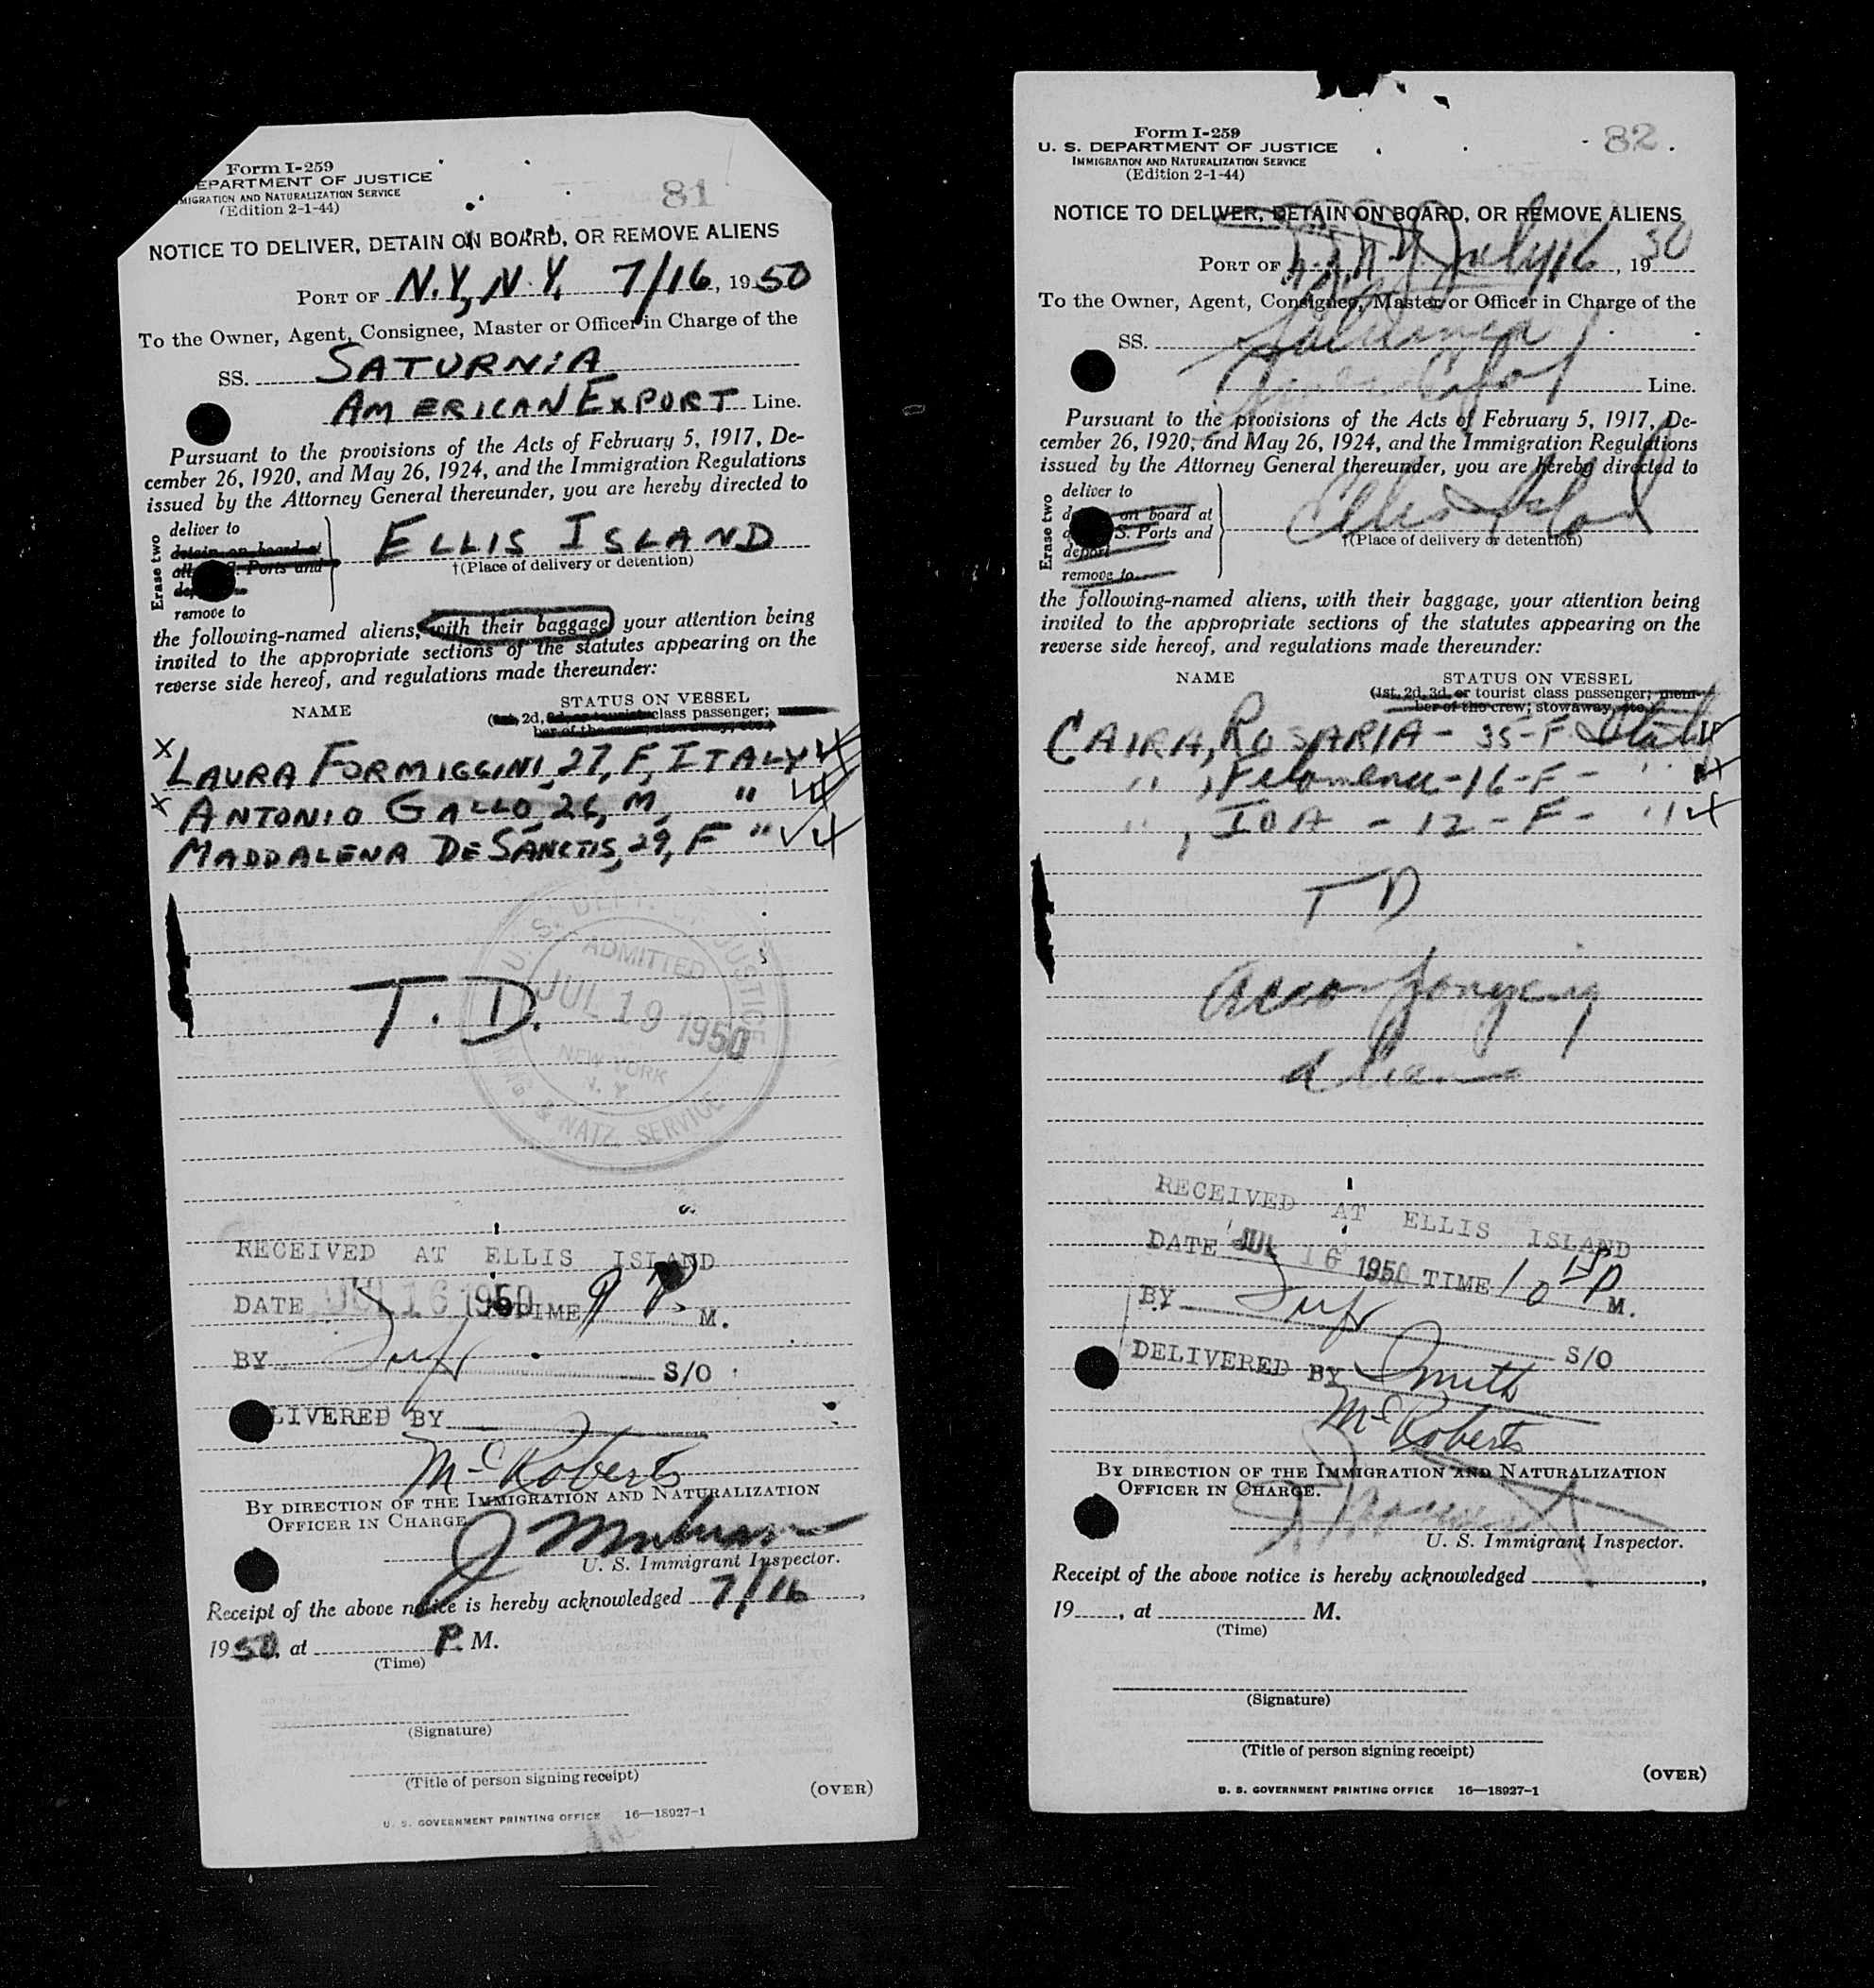 Form I-259
EPARTMENT OF JUSTICE
MIGRATION AND NATURALIZATION SERVICE
(Edition 2-1-44)
81
NOTICE TO DELIVER, DETAIN ON BOARD, OR REMOVE ALIENS
PORT OF N.Y., N.Y. 7/16, 1950
To the Owner, Agent, Consignee, Master or Officer in Charge of the
SS. SATURNIA
AMERICAN EXPORT Line.
Pursuant to the provisions of the Acts of February 5, 1917, De-
cember 26, 1920, and May 26, 1924, and the Immigration Regulations
issued by the Attorney General thereunder, you are hereby directed to
Erase two
deliver to
detain on board at
all S. Ports and
remove to
ELLIS ISLAND
†(Place of delivery or detention)
the following-named aliens, with their baggage, your attention being
invited to the appropriate sections of the statutes appearing on the
reverse side hereof, and regulations made thereunder:
NAME
STATUS ON VESSEL
(1st, 2d, 3d, or tourist class passenger;
ber of the crew; stowaway, etc.)
X LAURA FORMIGGINI, 27, F, ITALY
X ANTONIO GALLO, 26, M, "
MADDALENA DESANCTIS, 29, F "
T. D.
U. S. DEPT. OF JUSTICE
ADMITTED
JUL 19 1950
NEW YORK
N. Y.
IMMG. & NATZ. SERVICE
RECEIVED AT ELLIS ISLAND
DATE JUL 16 1950 TIME 9 P. M.
BY S/O
LIVERED BY
McRoberts
BY DIRECTION OF THE IMMIGRATION AND NATURALIZATION
OFFICER IN CHARGE.
U. S. Immigrant Inspector.
Receipt of the above notice is hereby acknowledged 7/16,
1950, at P. M.
(Time)
(Signature)
(Title of person signing receipt)
(OVER)
U. S. GOVERNMENT PRINTING OFFICE 16—18927-1
Form I-259
U. S. DEPARTMENT OF JUSTICE
IMMIGRATION AND NATURALIZATION SERVICE
(Edition 2-1-44)
82
NOTICE TO DELIVER, DETAIN ON BOARD, OR REMOVE ALIENS
PORT OF N.Y. July 16, 1950
To the Owner, Agent, Consignee, Master or Officer in Charge of the
SS. Saturnia
Line.
Pursuant to the provisions of the Acts of February 5, 1917, De-
cember 26, 1920, and May 26, 1924, and the Immigration Regulations
issued by the Attorney General thereunder, you are hereby directed to
Erase two
deliver to
on board at
S. Ports and
deport
remove to
Ellis Island
†(Place of delivery or detention)
the following-named aliens, with their baggage, your attention being
invited to the appropriate sections of the statutes appearing on the
reverse side hereof, and regulations made thereunder:
NAME
STATUS ON VESSEL
(1st, 2d, 3d, or tourist class passenger; mem-
ber of the crew; stowaway, etc.)
CAIRA, ROSARIA - 35 - F Italy
" , Filomena - 16 - F - "
" , IDA - 12 - F - "
T D
accompanying
alien
RECEIVED AT ELLIS ISLAND
DATE JUL 16 1950 TIME 10 15 P M.
BY S/O
DELIVERED BY Smith
McRoberts
BY DIRECTION OF THE IMMIGRATION AND NATURALIZATION
OFFICER IN CHARGE.
U. S. Immigrant Inspector.
Receipt of the above notice is hereby acknowledged
19, at M.
(Time)
(Signature)
(Title of person signing receipt)
(OVER)
U. S. GOVERNMENT PRINTING OFFICE 16—18927-1